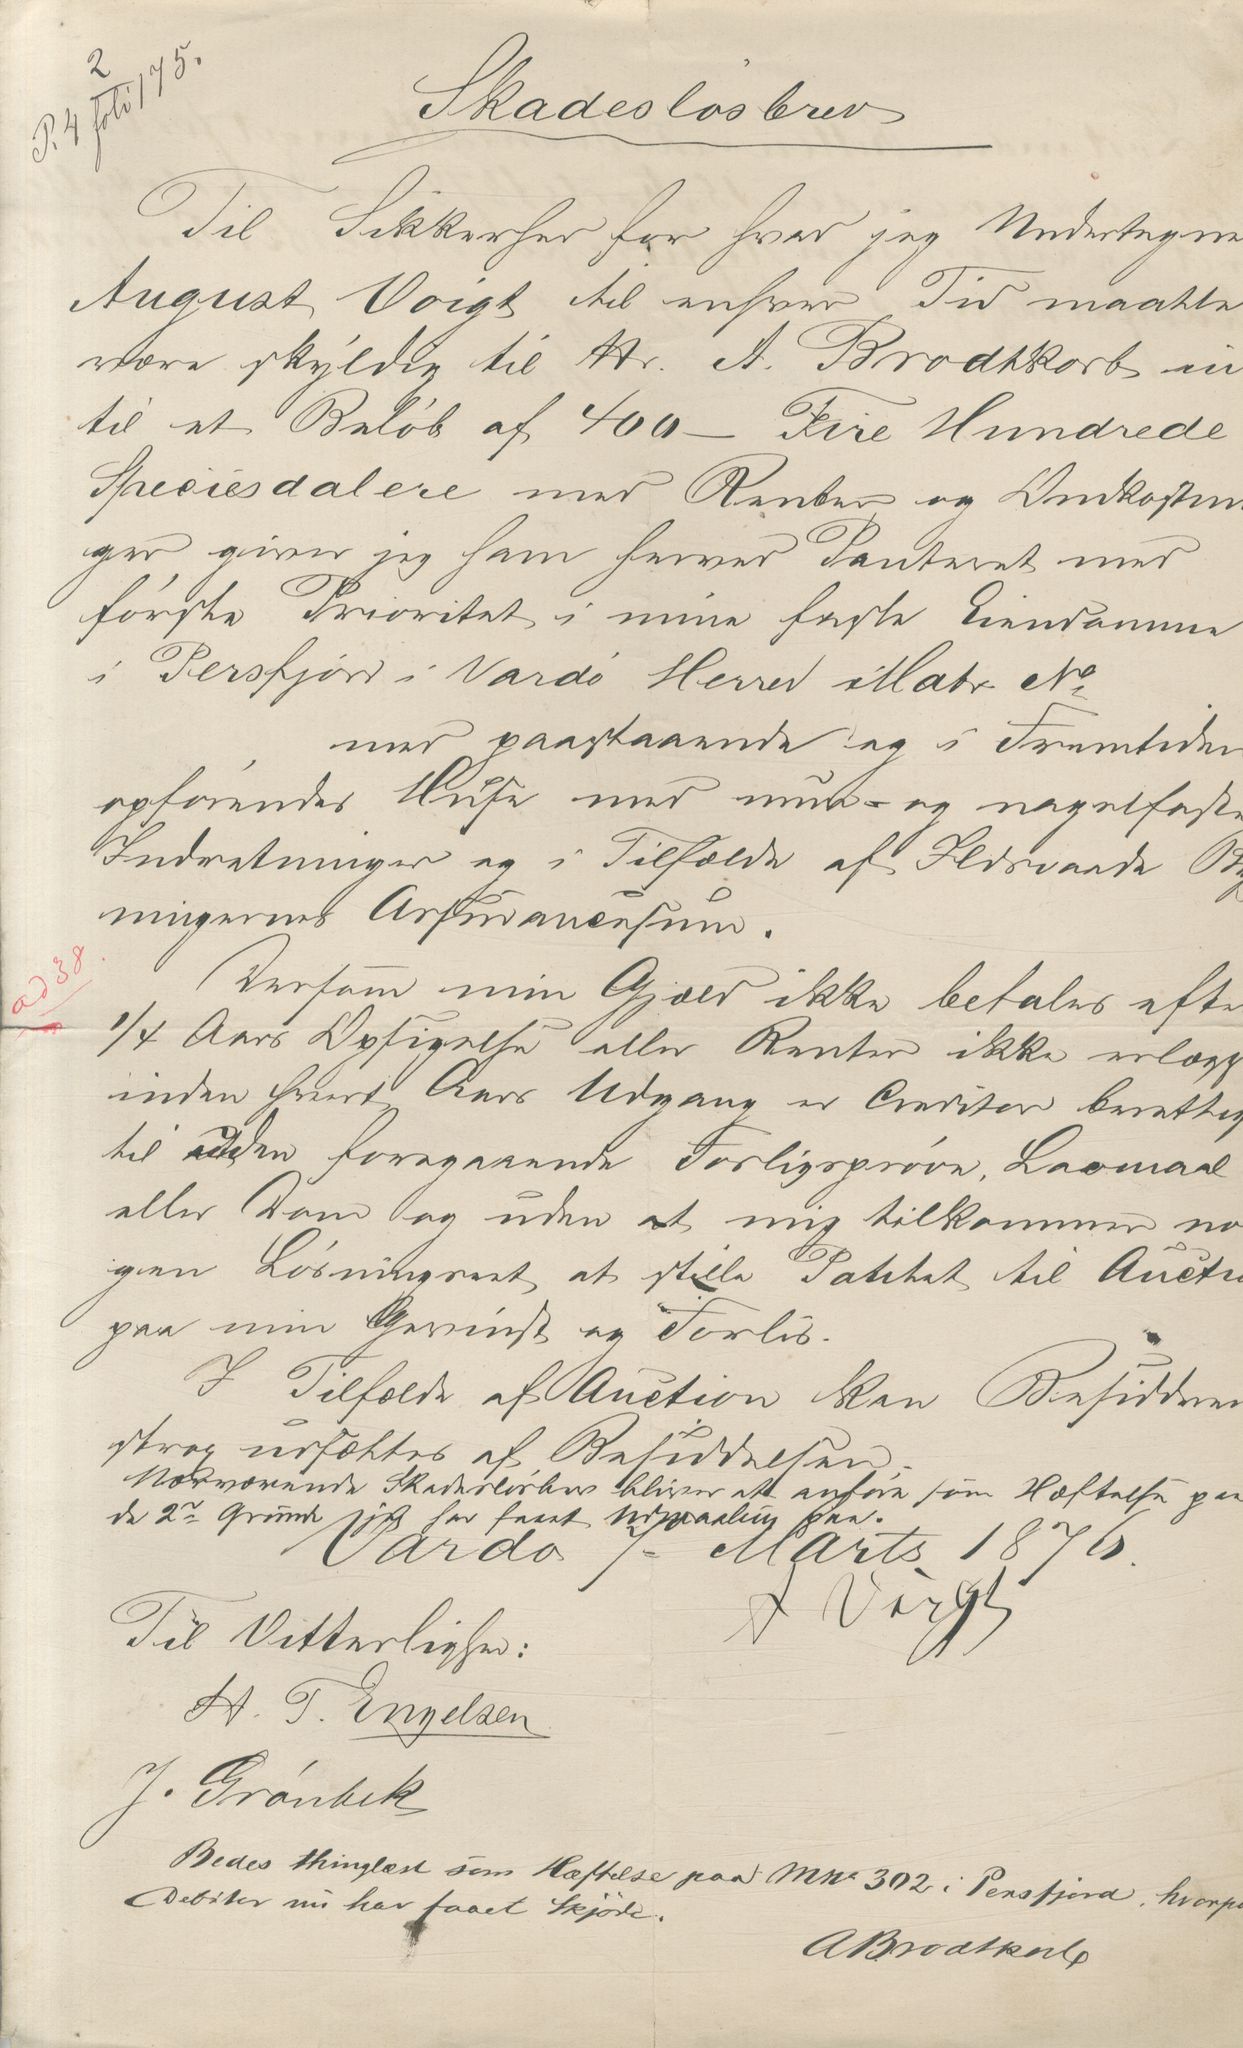 2
P. 4 folio 175.
Skadesløsbrev
Til Sikkerhed for hvad jeg Undertegne
August Voigt til enhver Tid maatte
være skyldig til Hr. A. Brodtkorb in
til et Beløb af 400 — Fire Hundrede
Speciesdalere med Renter og Omkostnin
ger giver jeg ham herved Panteret med
første Prioritet i mine faste Eiendomme
i Persfjord i Vardø Herred Matr No
med paastaaende og i Fremtiden
opførendes Huse med mur- og nagelfaste
Indretninger og i Tilfælde af Ildsvaade Byg
ningernes Assurancesum.
ad 38.
Dersom min Gjæld ikke betales efte
1/4 Aars Opsigelse eller Renter ikke erlægg
inden hvert Aars Udgang er Creditor berettig
til uden foregaaende Forligsprøve, Lavmaal
eller Dom og uden at mig tilkommer no
gen Løsningsret at stille Pantet til Auctio
paa min Gevinst og Forlis.
I Tilfælde af Auction kan Besidderen
strax udsættes af Besiddelsen.
Nærværende Skadesløsbrev bliver at anføre som Hæftelse paa
de 2de Grunde jeg har faaet Udmaaling paa.
Vardø 7- Marts 1876.
A Voigt
Til Vitterlighed:
H. T. Engelsen
J. Grønbek
Bedes thinglæst som Hæftelse paa MNo 302 i Persfjord, hvorpaa
Debitor nu har faaet Skjøde.
A Brodtkorb